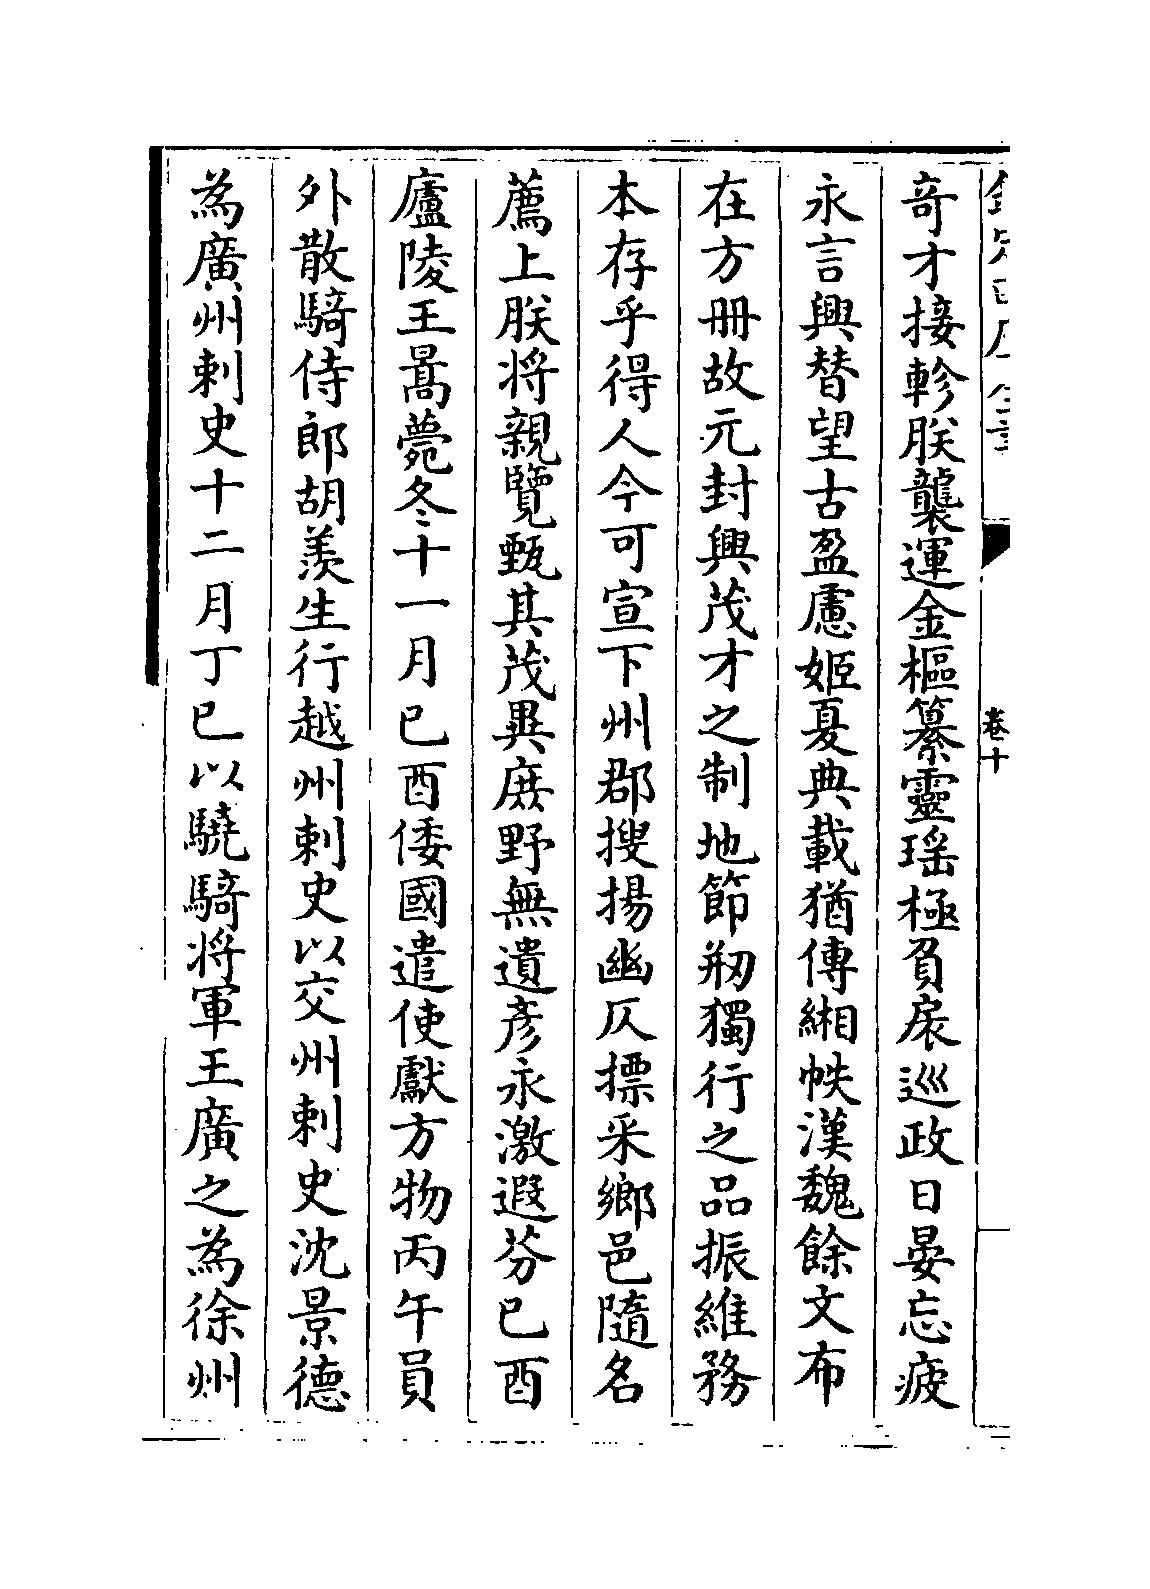 卷十
奇才接軫朕襲運金樞纂靈瑶極負扆巡政日晏忘疲
永言興替望古盈慮姬夏典載猶傳緗帙漢魏餘文布
在方冊故元封興茂才之制地節剏獨行之品振維務
本存乎得人今可宣下州郡搜揚幽仄摽采鄉邑隨名
薦上朕將親覽甄其茂異庶野無遺彦永激遐芬已酉
廬陵王暠薨冬十一月已酉倭國遣使獻方物丙午員
外散騎侍郎胡羨生行越州刺史以交州刺史沈景德
為廣州刺史十二月丁已以驍騎將軍王廣之為徐州